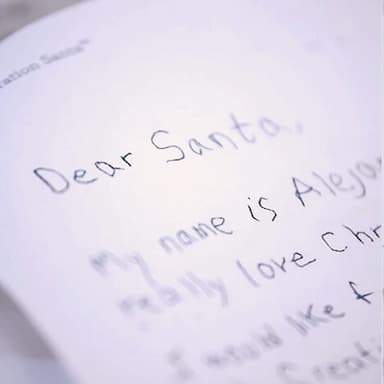 Santa™
Dear Santa,
My name is Aleja
really love Chr
I would like f
Creati